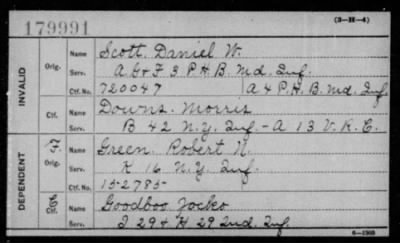 179991
(3-H-4)
INVALID
Orig. Name Scott, Daniel W.
Serv. A, G & F 3 P.H.B. Md. Inf.
Ctf. No. 720047 A 4 P.H.B. Md. Inf.
Ctf. Name Downs. Morris
Serv. B 42 N.Y. Inf. - A 13 V.R.C.
DEPENDENT
F. Orig. Name Green. Robert N.
Serv. K 16 N.Y. Inf.
Ctf. No. 152785-
C. Ctf. Name Goodboo Jocko
Serv. I 29 & H 29 Ind. Inf.
6-1908